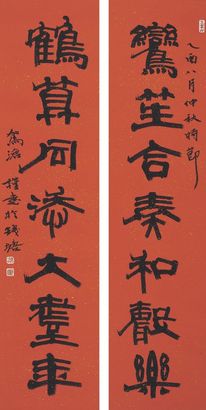 乙酉八月仲秋時節
鸞笙合奏和聲樂
鶴算同添大耋年
於錢塘